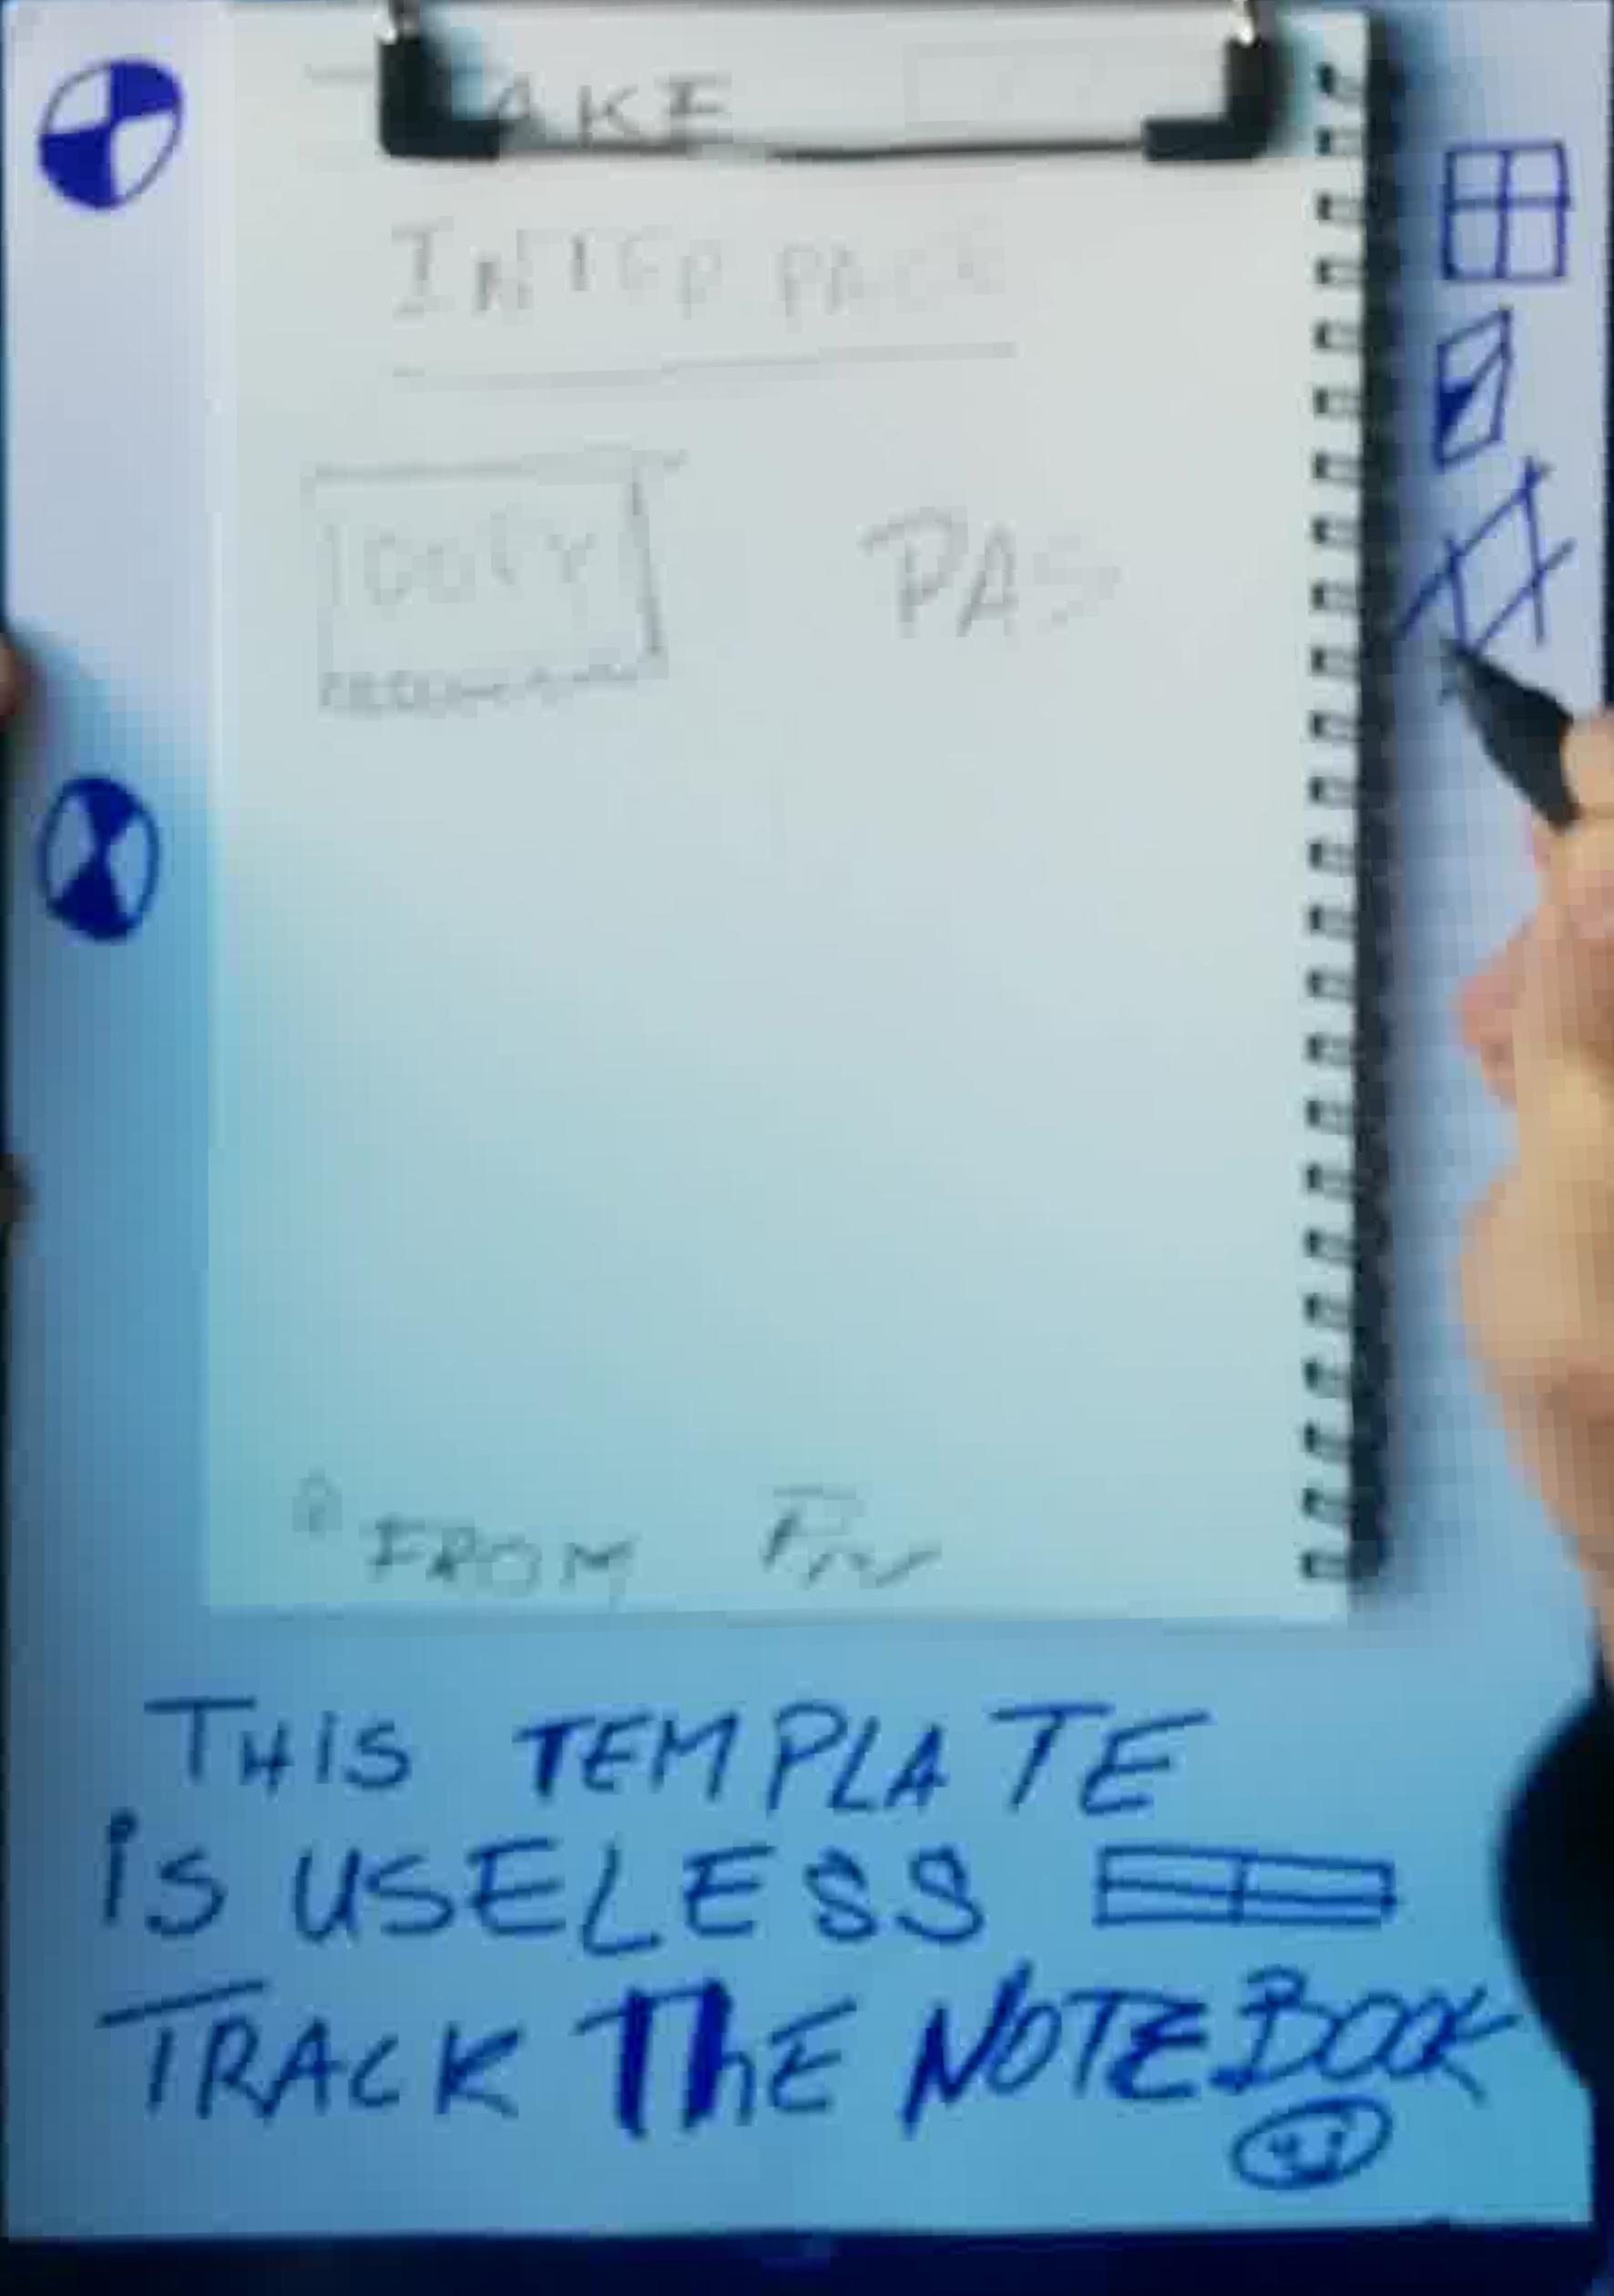 AKE
COPY PAS
FROM
THIS TEMPLATE
is USELESS
TRACK ThE NOTEBOOK